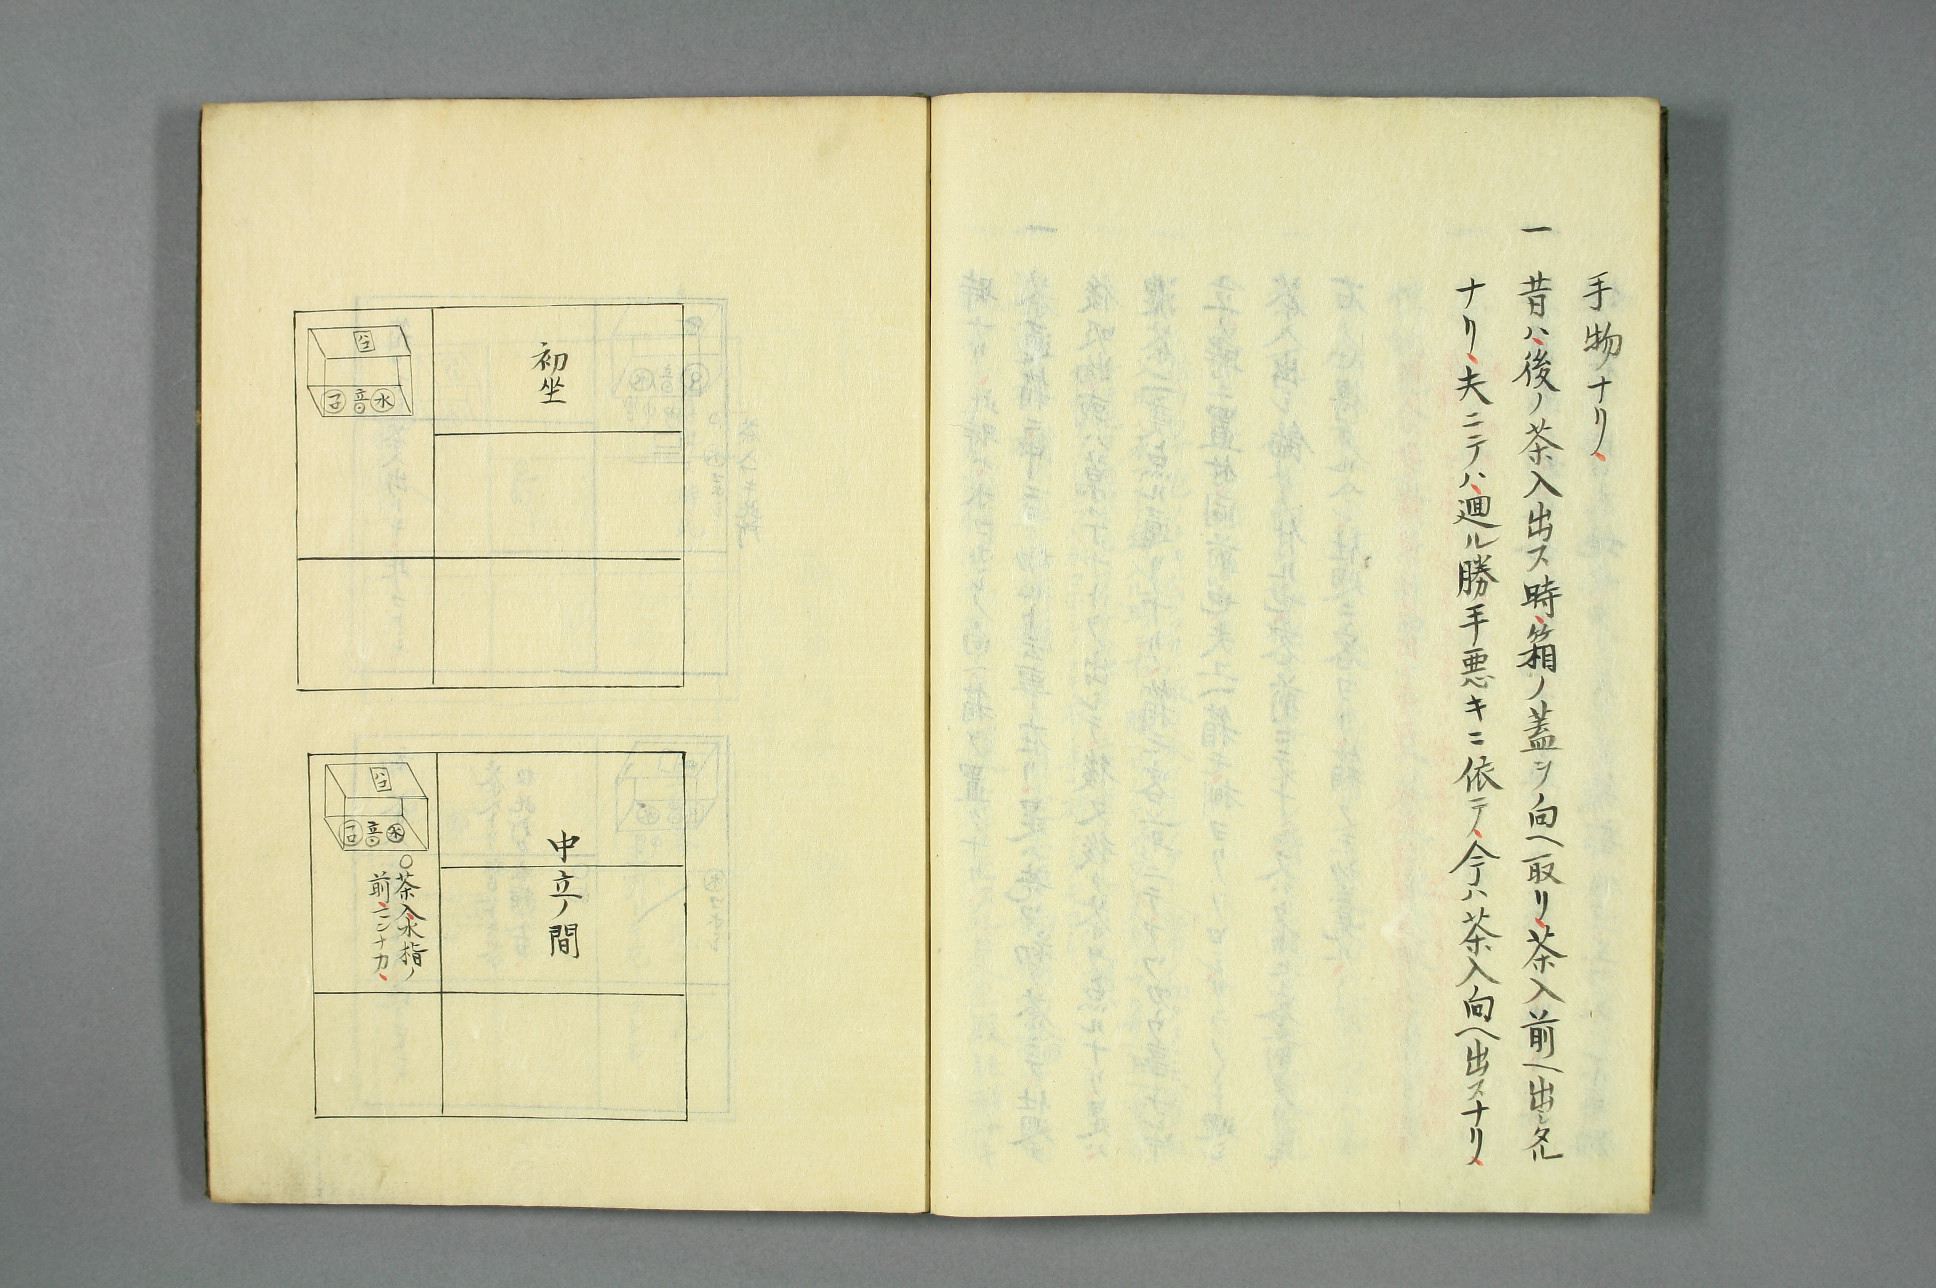 手物ナリ、
一 昔ハ、後ノ茶入出ス時、箱ノ蓋ヲ向ヘ取リ、茶入前ヘ出シタル
ナリ、夫ニテハ、廻ル勝手悪キニ依テ、今ハ茶入向ヘ出スナリ、
初坐
水
中立ノ間
水
○茶入、水指ノ
前ニナカ、